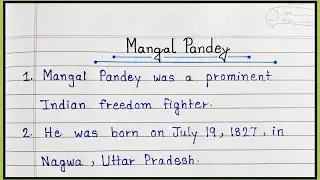 Mangal Pandey
1. Mangal Pandey was a prominent
Indian freedom fighter.
2. He was born on July 19, 1827, in
Nagwa, Uttar Pradesh.